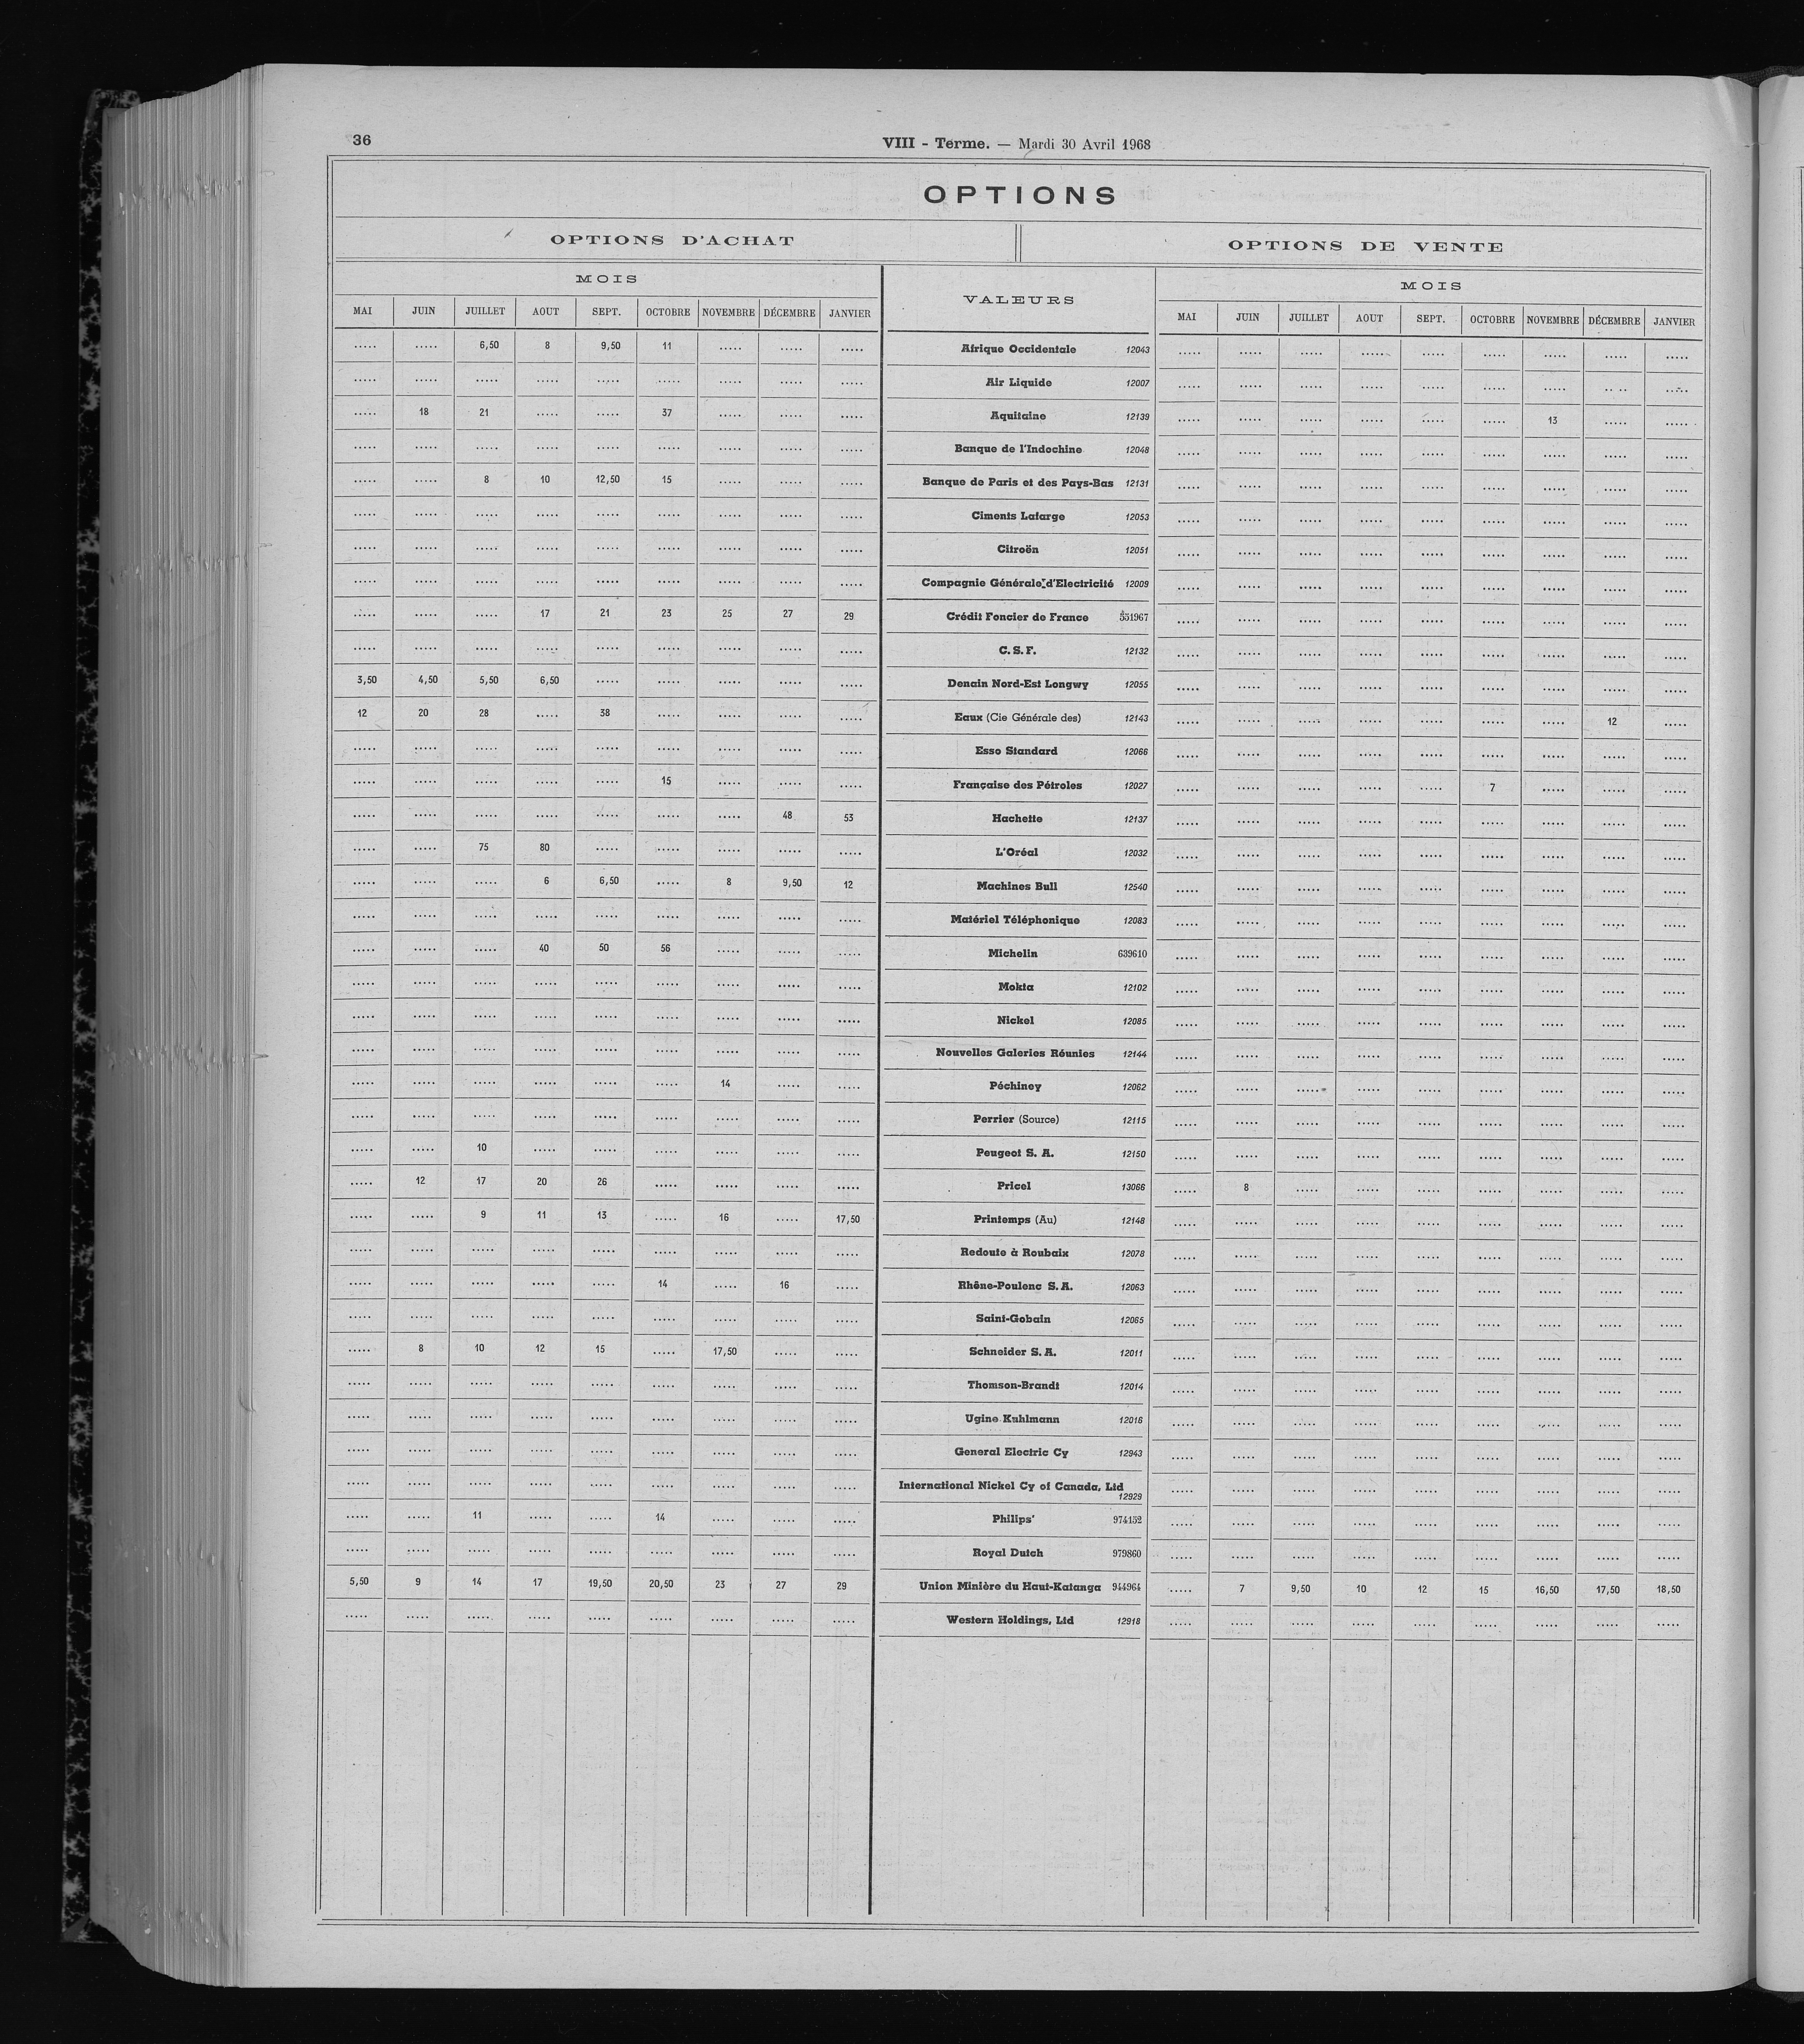 36
VIII - Terme. — Mardi 30 Avril 1968
OPTIONS
OPTIONS D'ACHAT OPTIONS DE VENTE
MOIS VALEURS MOIS
MAI JUIN JUILLET AOUT SEPT. OCTOBRE NOVEMBRE DÉCEMBRE JANVIER MAI JUIN JUILLET AOUT SEPT. OCTOBRE NOVEMBRE DÉCEMBRE JANVIER
..... ..... 6,50 8 9,50 11 ..... ..... ..... Afrique Occidentale 12043 ..... ..... ..... ..... ..... ..... ..... ..... .....
..... ..... ..... ..... ..... ..... ..... ..... ..... Air Liquide 12007 ..... ..... ..... ..... ..... ..... ..... ..... .....
..... 18 21 ..... ..... 37 ..... ..... ..... Aquitaine 12139 ..... ..... ..... ..... ..... ..... 13 ..... .....
..... ..... ..... ..... ..... ..... ..... ..... ..... Banque de l'Indochine 12048 ..... ..... ..... ..... ..... ..... ..... ..... .....
..... ..... 8 10 12,50 15 ..... ..... ..... Banque de Paris et des Pays-Bas 12131 ..... ..... ..... ..... ..... ..... ..... ..... .....
..... ..... ..... ..... ..... ..... ..... ..... ..... Ciments Lafarge 12053 ..... ..... ..... ..... ..... ..... ..... ..... .....
..... ..... ..... ..... ..... ..... ..... ..... ..... Citroën 12051 ..... ..... ..... ..... ..... ..... ..... ..... .....
..... ..... ..... ..... ..... ..... ..... ..... ..... Compagnie Générale d'Electricité 12009 ..... ..... ..... ..... ..... ..... ..... ..... .....
..... ..... ..... 17 21 23 25 27 29 Crédit Foncier de France 551967 ..... ..... ..... ..... ..... ..... ..... ..... .....
..... ..... ..... ..... ..... ..... ..... ..... ..... C. S. F. 12132 ..... ..... ..... ..... ..... ..... ..... ..... .....
3,50 4,50 5,50 6,50 ..... ..... ..... ..... ..... Denain Nord-Est Longwy 12055 ..... ..... ..... ..... ..... ..... ..... ..... .....
12 20 28 ..... 38 ..... ..... ..... ..... Eaux (Cie Générale des) 12143 ..... ..... ..... ..... ..... ..... ..... 12 .....
..... ..... ..... ..... ..... ..... ..... ..... ..... Esso Standard 12066 ..... ..... ..... ..... ..... ..... ..... ..... .....
..... ..... ..... ..... ..... 15 ..... ..... ..... Française des Pétroles 12027 ..... ..... ..... ..... ..... 7 ..... ..... .....
..... ..... ..... ..... ..... ..... ..... 48 53 Hachette 12137 ..... ..... ..... ..... ..... ..... ..... ..... .....
..... ..... 75 80 ..... ..... ..... ..... ..... L'Oréal 12032 ..... ..... ..... ..... ..... ..... ..... ..... .....
..... ..... ..... 6 6,50 ..... 8 9,50 12 Machines Bull 12540 ..... ..... ..... ..... ..... ..... ..... ..... .....
..... ..... ..... ..... ..... ..... ..... ..... ..... Matériel Téléphonique 12083 ..... ..... ..... ..... ..... ..... ..... ..... .....
..... ..... ..... 40 50 56 ..... ..... ..... Michelin 639610 ..... ..... ..... ..... ..... ..... ..... ..... .....
..... ..... ..... ..... ..... ..... ..... ..... ..... Mokta 12102 ..... ..... ..... ..... ..... ..... ..... ..... .....
..... ..... ..... ..... ..... ..... ..... ..... ..... Nickel 12085 ..... ..... ..... ..... ..... ..... ..... ..... .....
..... ..... ..... ..... ..... ..... ..... ..... ..... Nouvelles Galeries Réunies 12144 ..... ..... ..... ..... ..... ..... ..... ..... .....
..... ..... ..... ..... ..... ..... 14 ..... ..... Péchiney 12062 ..... ..... ..... ..... ..... ..... ..... ..... .....
..... ..... ..... ..... ..... ..... ..... ..... ..... Perrier (Source) 12115 ..... ..... ..... ..... ..... ..... ..... ..... .....
..... ..... 10 ..... ..... ..... ..... ..... ..... Peugeot S. A. 12150 ..... ..... ..... ..... ..... ..... ..... ..... .....
..... 12 17 20 26 ..... ..... ..... ..... Pricel 13066 ..... 8 ..... ..... ..... ..... ..... ..... .....
..... ..... 9 11 13 ..... 16 ..... 17,50 Printemps (Au) 12148 ..... ..... ..... ..... ..... ..... ..... ..... .....
..... ..... ..... ..... ..... ..... ..... ..... ..... Redoute à Roubaix 12078 ..... ..... ..... ..... ..... ..... ..... ..... .....
..... ..... ..... ..... ..... 14 ..... 16 ..... Rhône-Poulenc S. A. 12063 ..... ..... ..... ..... ..... ..... ..... ..... .....
..... ..... ..... ..... ..... ..... ..... ..... ..... Saint-Gobain 12065 ..... ..... ..... ..... ..... ..... ..... ..... .....
..... 8 10 12 15 ..... 17,50 ..... ..... Schneider S. A. 12011 ..... ..... ..... ..... ..... ..... ..... ..... .....
..... ..... ..... ..... ..... ..... ..... ..... ..... Thomson-Brandt 12014 ..... ..... ..... ..... ..... ..... ..... ..... .....
..... ..... ..... ..... ..... ..... ..... ..... ..... Ugine Kuhlmann 12016 ..... ..... ..... ..... ..... ..... ..... ..... .....
..... ..... ..... ..... ..... ..... ..... ..... ..... General Electric Cy 12943 ..... ..... ..... ..... ..... ..... ..... ..... .....
..... ..... ..... ..... ..... ..... ..... ..... ..... International Nickel Cy of Canada, Ltd ..... ..... ..... ..... ..... ..... ..... ..... .....
12929
..... ..... 11 ..... ..... 14 ..... ..... ..... Philips' 974152 ..... ..... ..... ..... ..... ..... ..... ..... .....
..... ..... ..... ..... ..... ..... ..... ..... ..... Royal Dutch 979860 ..... ..... ..... ..... ..... ..... ..... ..... .....
5,50 9 14 17 19,50 20,50 23 27 29 Union Minière du Haut-Katanga 944964 ..... 7 9,50 10 12 15 16,50 17,50 18,50
..... ..... ..... ..... ..... ..... ..... ..... ..... Western Holdings, Ltd 12918 ..... ..... ..... ..... ..... ..... ..... ..... .....